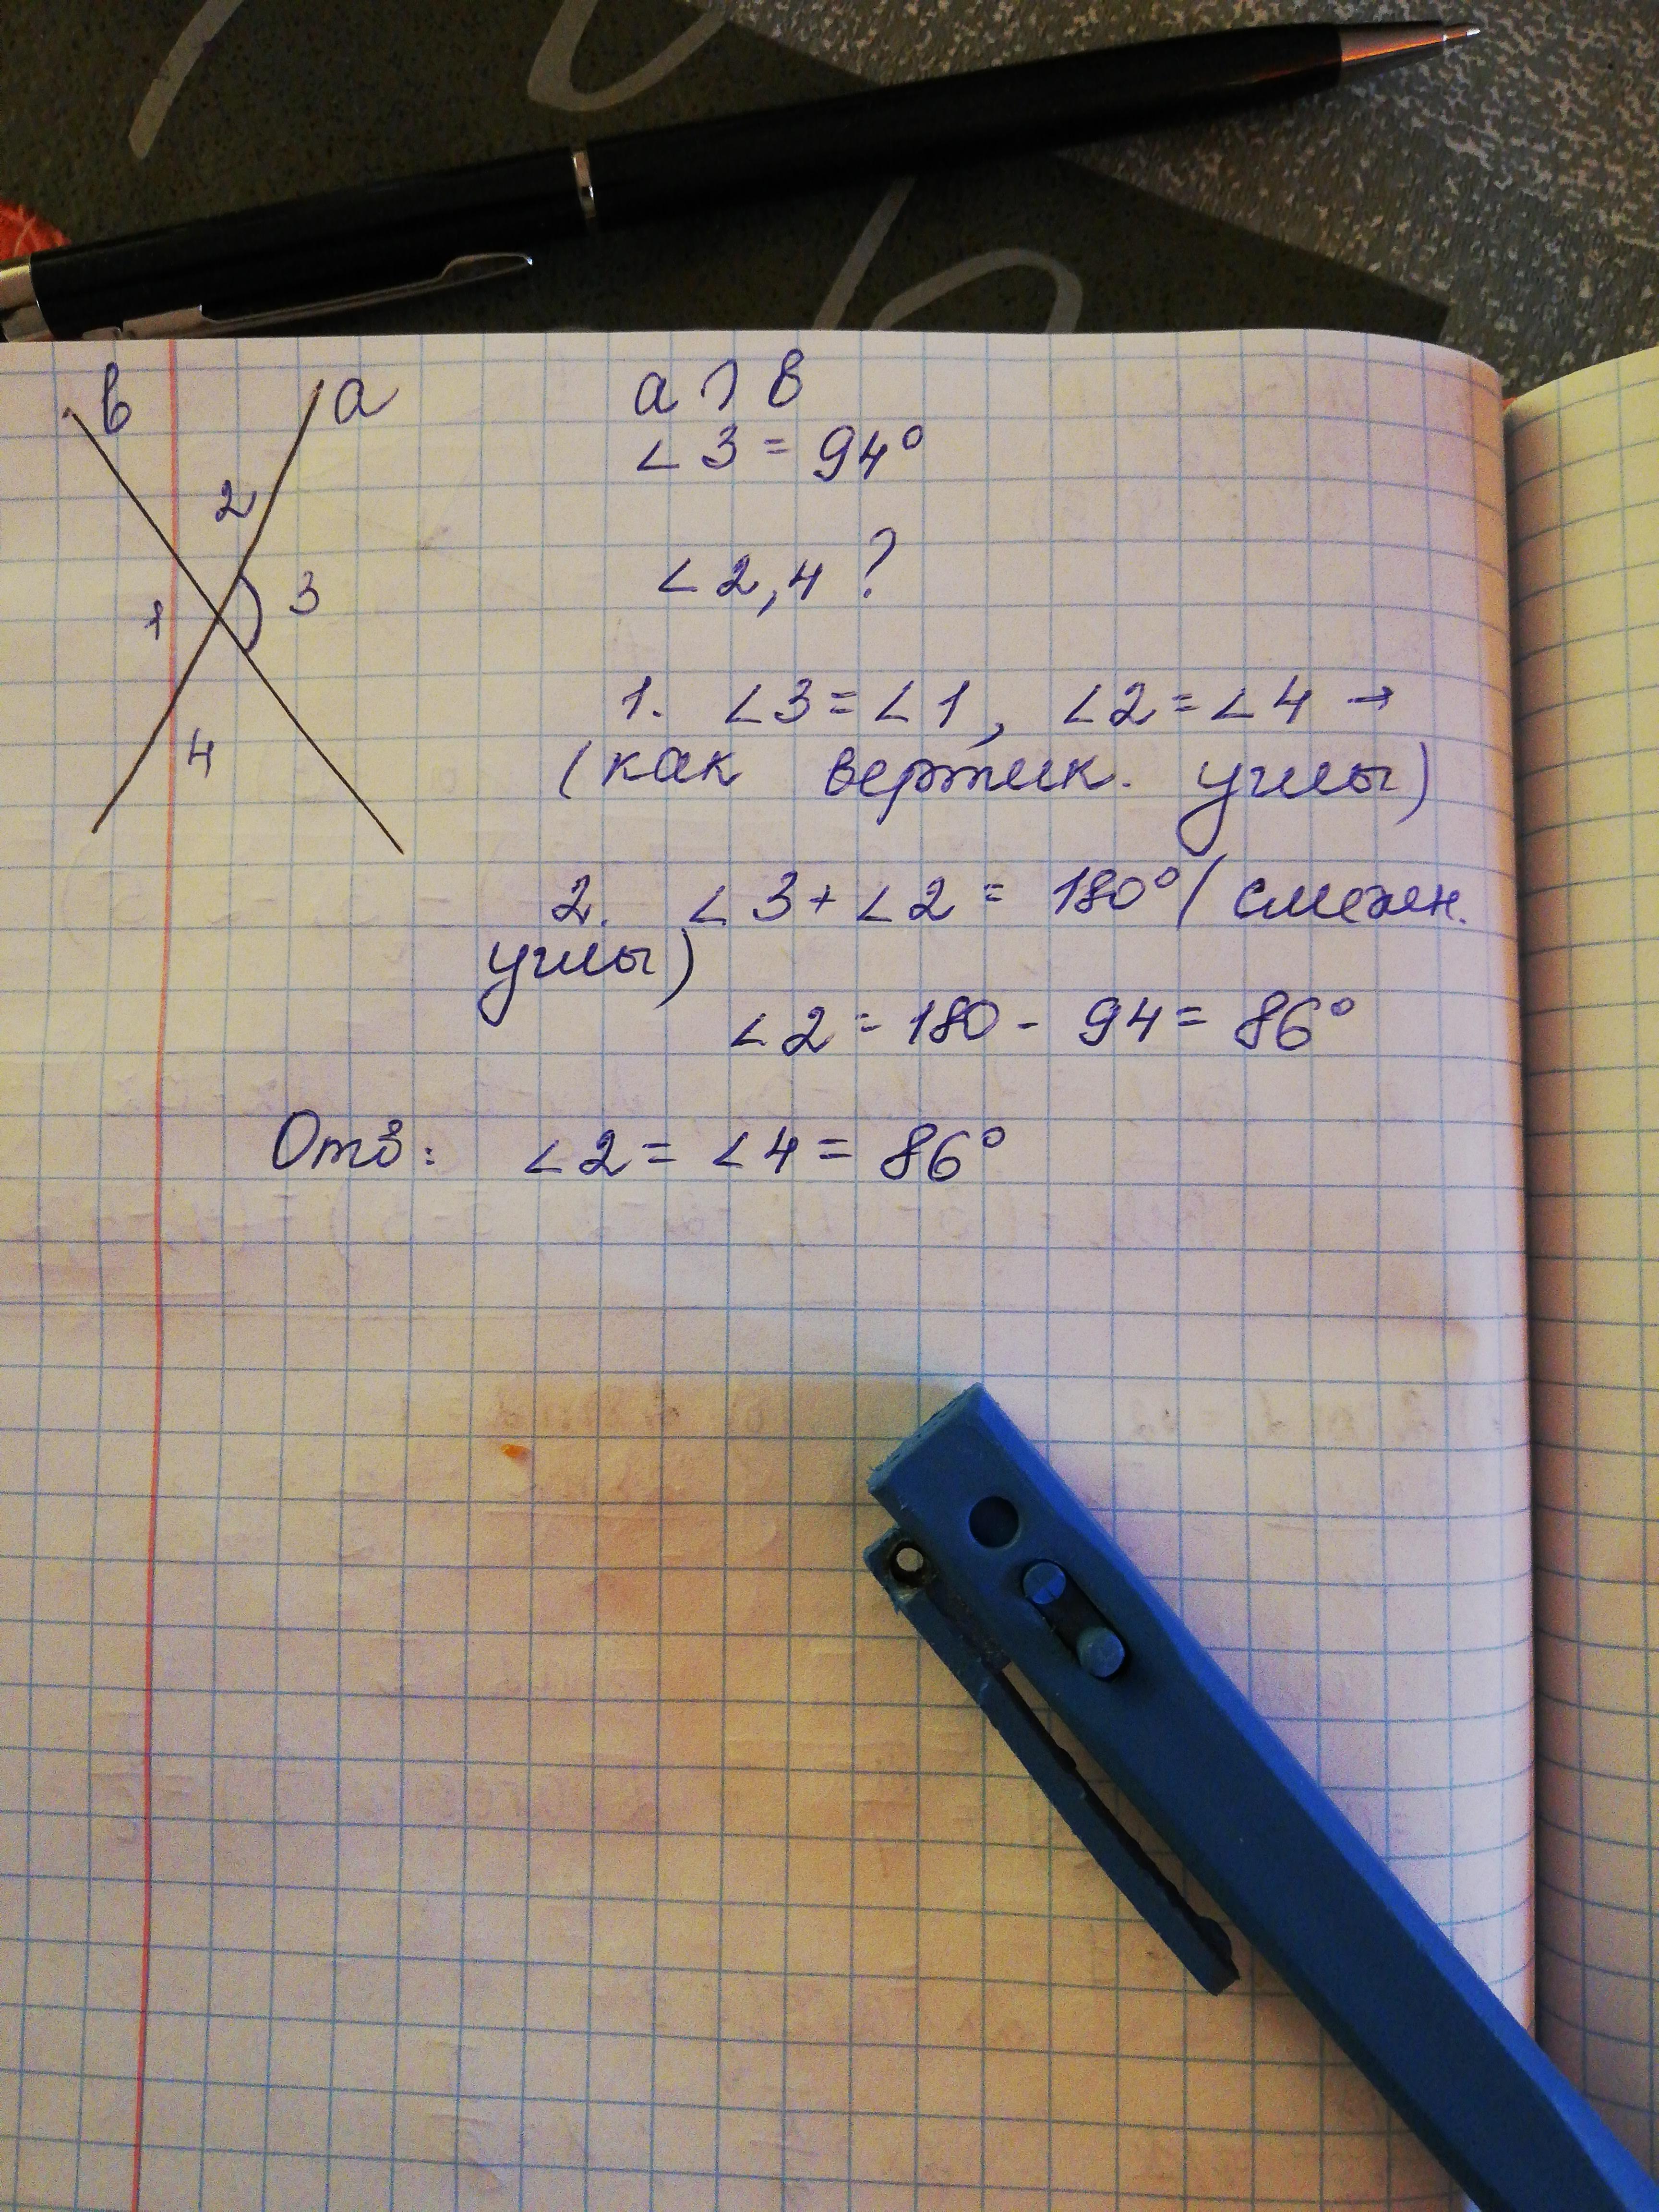 в а
2
1 3
4
а ∩ в
∠3 = 94°
∠2,4 ?
1. ∠3 = ∠1, ∠2 = ∠4 →
(как вертик. углы)
2. ∠3 + ∠2 = 180° (смежн.
углы)
∠2 = 180 - 94 = 86°
Отв: ∠2 = ∠4 = 86°